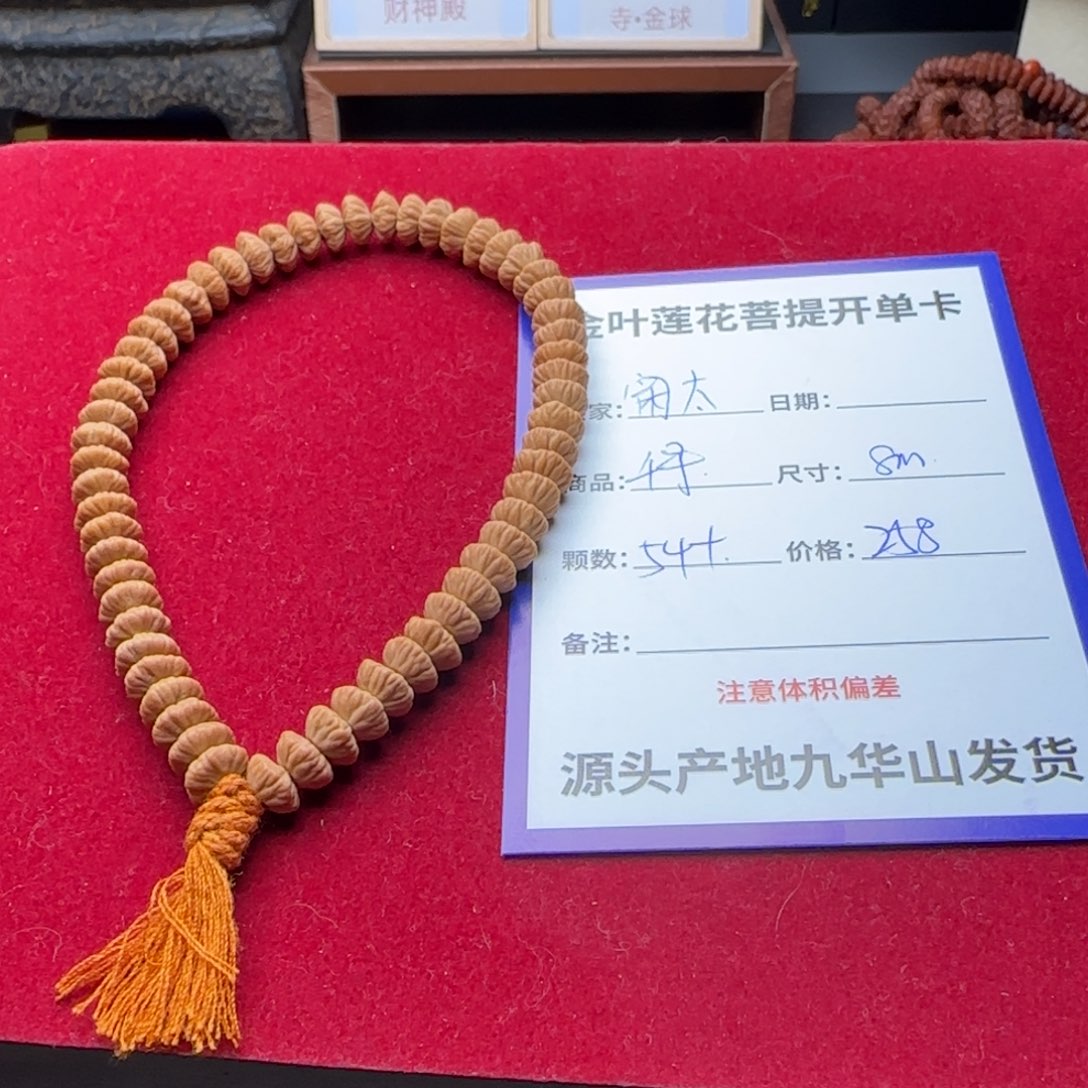 财神殿
寺·金球
金叶莲花菩提开单卡
家: 闲太 日期:
商品: 手 尺寸: 8m
颗数: 54十. 价格: 258
备注:
注意体积偏差
源头产地九华山发货